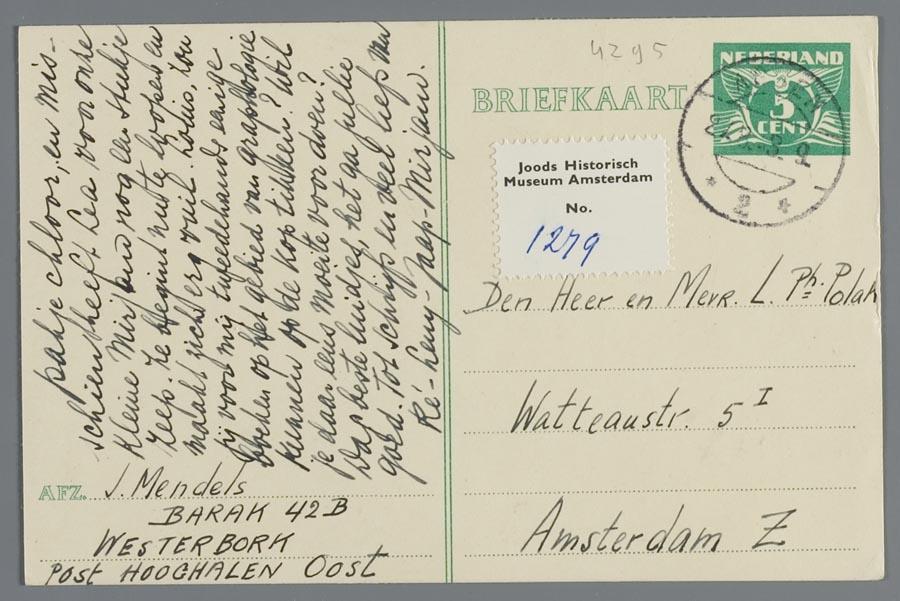 pakje chloor, en mis-
schien heeft Lea voor onze
kleine Mirjam nog een stukje
zeep. Ze begint nu te loopen en
maakt zich erg vuil. Louis, zou
jij voor mij tweedehands eenige
boeken op het gebied van graphologie
kunnen op de kop tikken? Wil
je daar eens moeite voor doen?
Dag beste luidjes, het ga jullie
goed. Tot schrijfs en veel liefs van
Ré-Heny-Jaap-Mirjam.
AFZ. J. Mendels
BARAK 42B
WESTERBORK
POST HOOGHALEN Oost
4295
BRIEFKAART
NEDERLAND
5
CENT
Joods Historisch
Museum Amsterdam
No.
1279
Den Heer en Mevr. L. Ph. Polak
Watteaustr. 5 I
Amsterdam Z